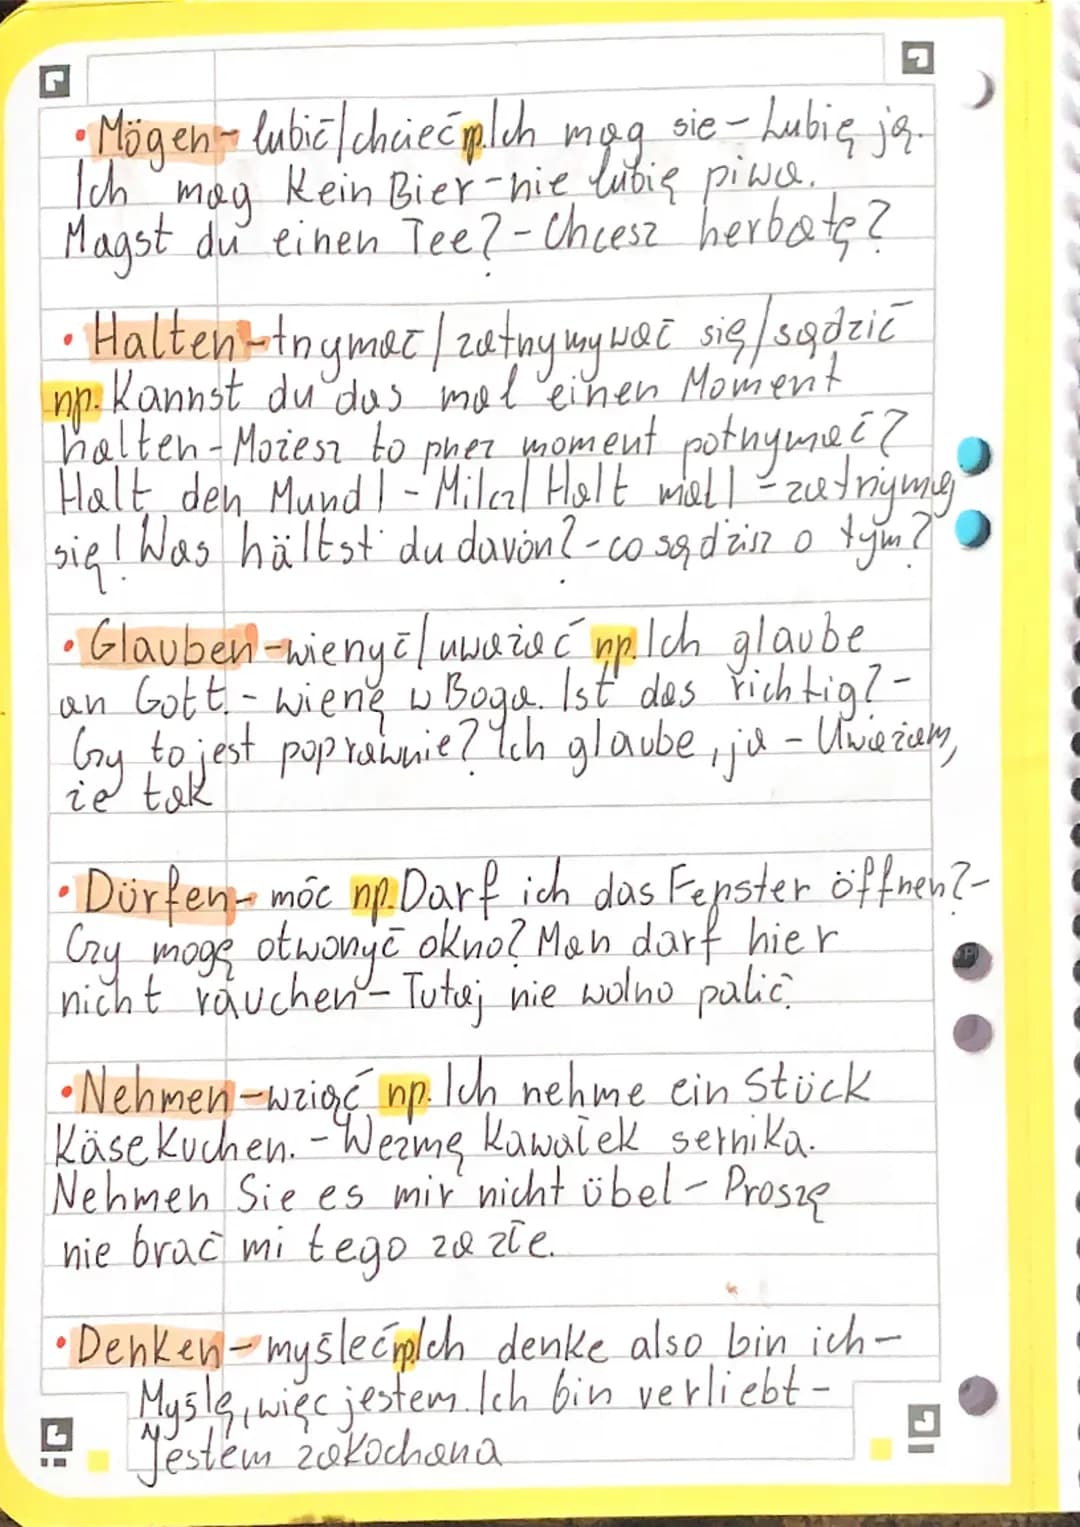 • Mögen - lubić/chcieć np. Ich mag sie - Lubię ją.
Ich mag kein Bier - nie lubię piwa.
Magst du einen Tee? - Chcesz herbatę?
• Halten - trzymać/zatrzymywać się/sądzić
np. Kannst du das mal einen Moment
halten - Możesz to przez moment potrzymać?
Halt den Mund! - Milcz! Halt mal! - zatrzymaj
się! Was hältst du davon? - co sądzisz o tym?
• Glauben - wierzyć/uważać np. Ich glaube
an Gott. - wierzę w Boga. Ist das richtig? -
Czy to jest poprawnie? Ich glaube, ja - Uważam,
że tak
• Dürfen - móc np. Darf ich das Fenster öffnen? -
Czy mogę otworzyć okno? Man darf hier
nicht rauchen - Tutaj nie wolno palić.
• Nehmen - wziąć np. Ich nehme ein Stück
Käsekuchen. - Wezmę kawałek sernika.
Nehmen Sie es mir nicht übel - Proszę
nie brać mi tego za złe.
• Denken - myśleć np. Ich denke also bin ich -
Myślę, więc jestem. Ich bin verliebt -
Jestem zakochana